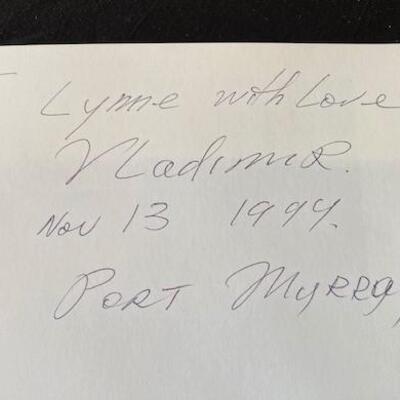 Lynne with Love
Vladimir.
Nov 13 1994.
Port Myrray